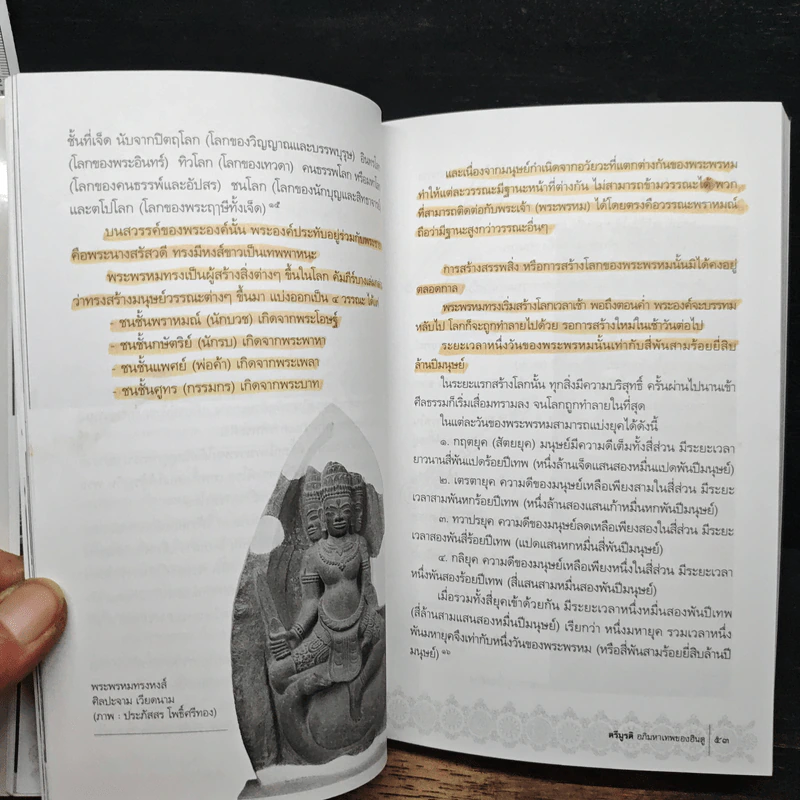 ชั้นที่เจ็ด นับจากปิตฤโลก (โลกของวิญญาณและบรรพบุรุษ) อินทรโลก
(โลกของพระอินทร์) ทิวโลก (โลกของเทวดา) คนธรรพโลก หรือมหโลก
(โลกของคนธรรพ์และอัปสร) ชนโลก (โลกของนักบุญและสิทธาจารย์)
และตโปโลก (โลกของพระฤๅษีทั้งเจ็ด)๑๕
บนสวรรค์ของพระองค์นั้น พระองค์ประทับอยู่ร่วมกับพระชายา
คือพระนางสรัสวดี ทรงมีหงส์ขาวเป็นเทพพาหนะ
พระพรหมทรงเป็นผู้สร้างสิ่งต่างๆ ขึ้นในโลก คัมภีร์บางเล่มกล่าว
ว่าทรงสร้างมนุษย์วรรณะต่างๆ ขึ้นมา แบ่งออกเป็น ๔ วรรณะ ได้แก่
- ชนชั้นพราหมณ์ (นักบวช) เกิดจากพระโอษฐ์
- ชนชั้นกษัตริย์ (นักรบ) เกิดจากพระพาหา
- ชนชั้นแพศย์ (พ่อค้า) เกิดจากพระเพลา
- ชนชั้นศูทร (กรรมกร) เกิดจากพระบาท
พระพรหมทรงหงส์
ศิลปะจาม เวียดนาม
(ภาพ : ประภัสสร โพธิ์ศรีทอง)
และเนื่องจากมนุษย์กำเนิดจากอวัยวะที่แตกต่างกันของพระพรหม
ทำให้แต่ละวรรณะมีฐานะหน้าที่ต่างกัน ไม่สามารถข้ามวรรณะได้ พวก
ที่สามารถติดต่อกับพระเจ้า (พระพรหม) ได้โดยตรงคือวรรณะพราหมณ์
ถือว่ามีฐานะสูงกว่าวรรณะอื่นๆ
การสร้างสรรพสิ่ง หรือการสร้างโลกของพระพรหมนั้นมิได้คงอยู่
ตลอดกาล
พระพรหมทรงเริ่มสร้างโลกเวลาเช้า พอถึงตอนค่ำ พระองค์จะบรรทม
หลับไป โลกก็จะถูกทำลายไปด้วย รอการสร้างใหม่ในเช้าวันต่อไป
ระยะเวลาหนึ่งวันของพระพรหมนั้นเท่ากับสี่พันสามร้อยยี่สิบ
ล้านปีมนุษย์
ในระยะแรกสร้างโลกนั้น ทุกสิ่งมีความบริสุทธิ์ ครั้นผ่านไปนานเข้า
ศีลธรรมก็เริ่มเสื่อมทรามลง จนโลกถูกทำลายในที่สุด
ในแต่ละวันของพระพรหมสามารถแบ่งยุคได้ดังนี้
๑. กฤตยุค (สัตยยุค) มนุษย์มีความดีเต็มทั้งสี่ส่วน มีระยะเวลา
ยาวนานสี่พันแปดร้อยปีเทพ (หนึ่งล้านเจ็ดแสนสองหมื่นแปดพันปีมนุษย์)
๒. เตรตายุค ความดีของมนุษย์เหลือเพียงสามในสี่ส่วน มีระยะ
เวลาสามพันหกร้อยปีเทพ (หนึ่งล้านสองแสนเก้าหมื่นหกพันปีมนุษย์)
๓. ทวาปรยุค ความดีของมนุษย์ลดเหลือเพียงสองในสี่ส่วน มีระยะ
เวลาสองพันสี่ร้อยปีเทพ (แปดแสนหกหมื่นสี่พันปีมนุษย์)
๔. กลียุค ความดีของมนุษย์เหลือเพียงหนึ่งในสี่ส่วน มีระยะเวลา
หนึ่งพันสองร้อยปีเทพ (สี่แสนสามหมื่นสองพันปีมนุษย์)
เมื่อรวมทั้งสี่ยุคเข้าด้วยกัน มีระยะเวลาหนึ่งหมื่นสองพันปีเทพ
(สี่ล้านสามแสนสองหมื่นปีมนุษย์) เรียกว่า หนึ่งมหายุค รวมเวลาหนึ่ง
พันมหายุคจึงเท่ากับหนึ่งวันของพระพรหม (หรือสี่พันสามร้อยยี่สิบล้านปี
มนุษย์)๑๖
ตรีมูรติ อภิมหาเทพของฮินดู ๕๓